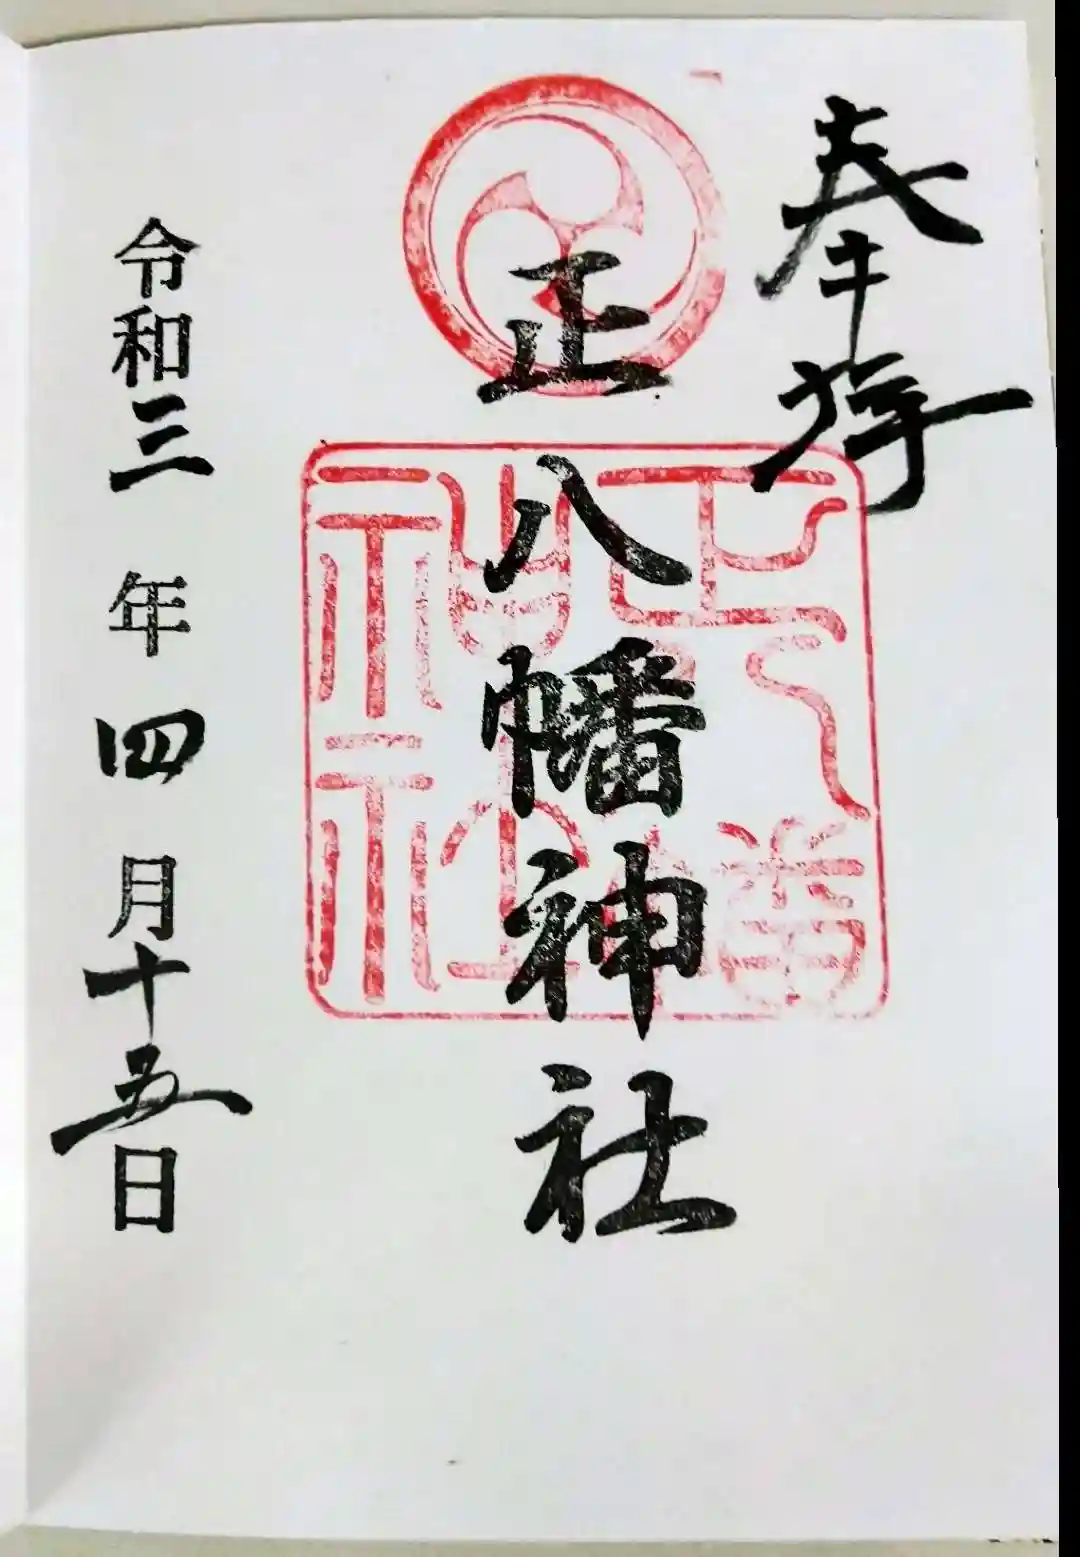 奉拝
正八幡神社
令和三年四月十五日